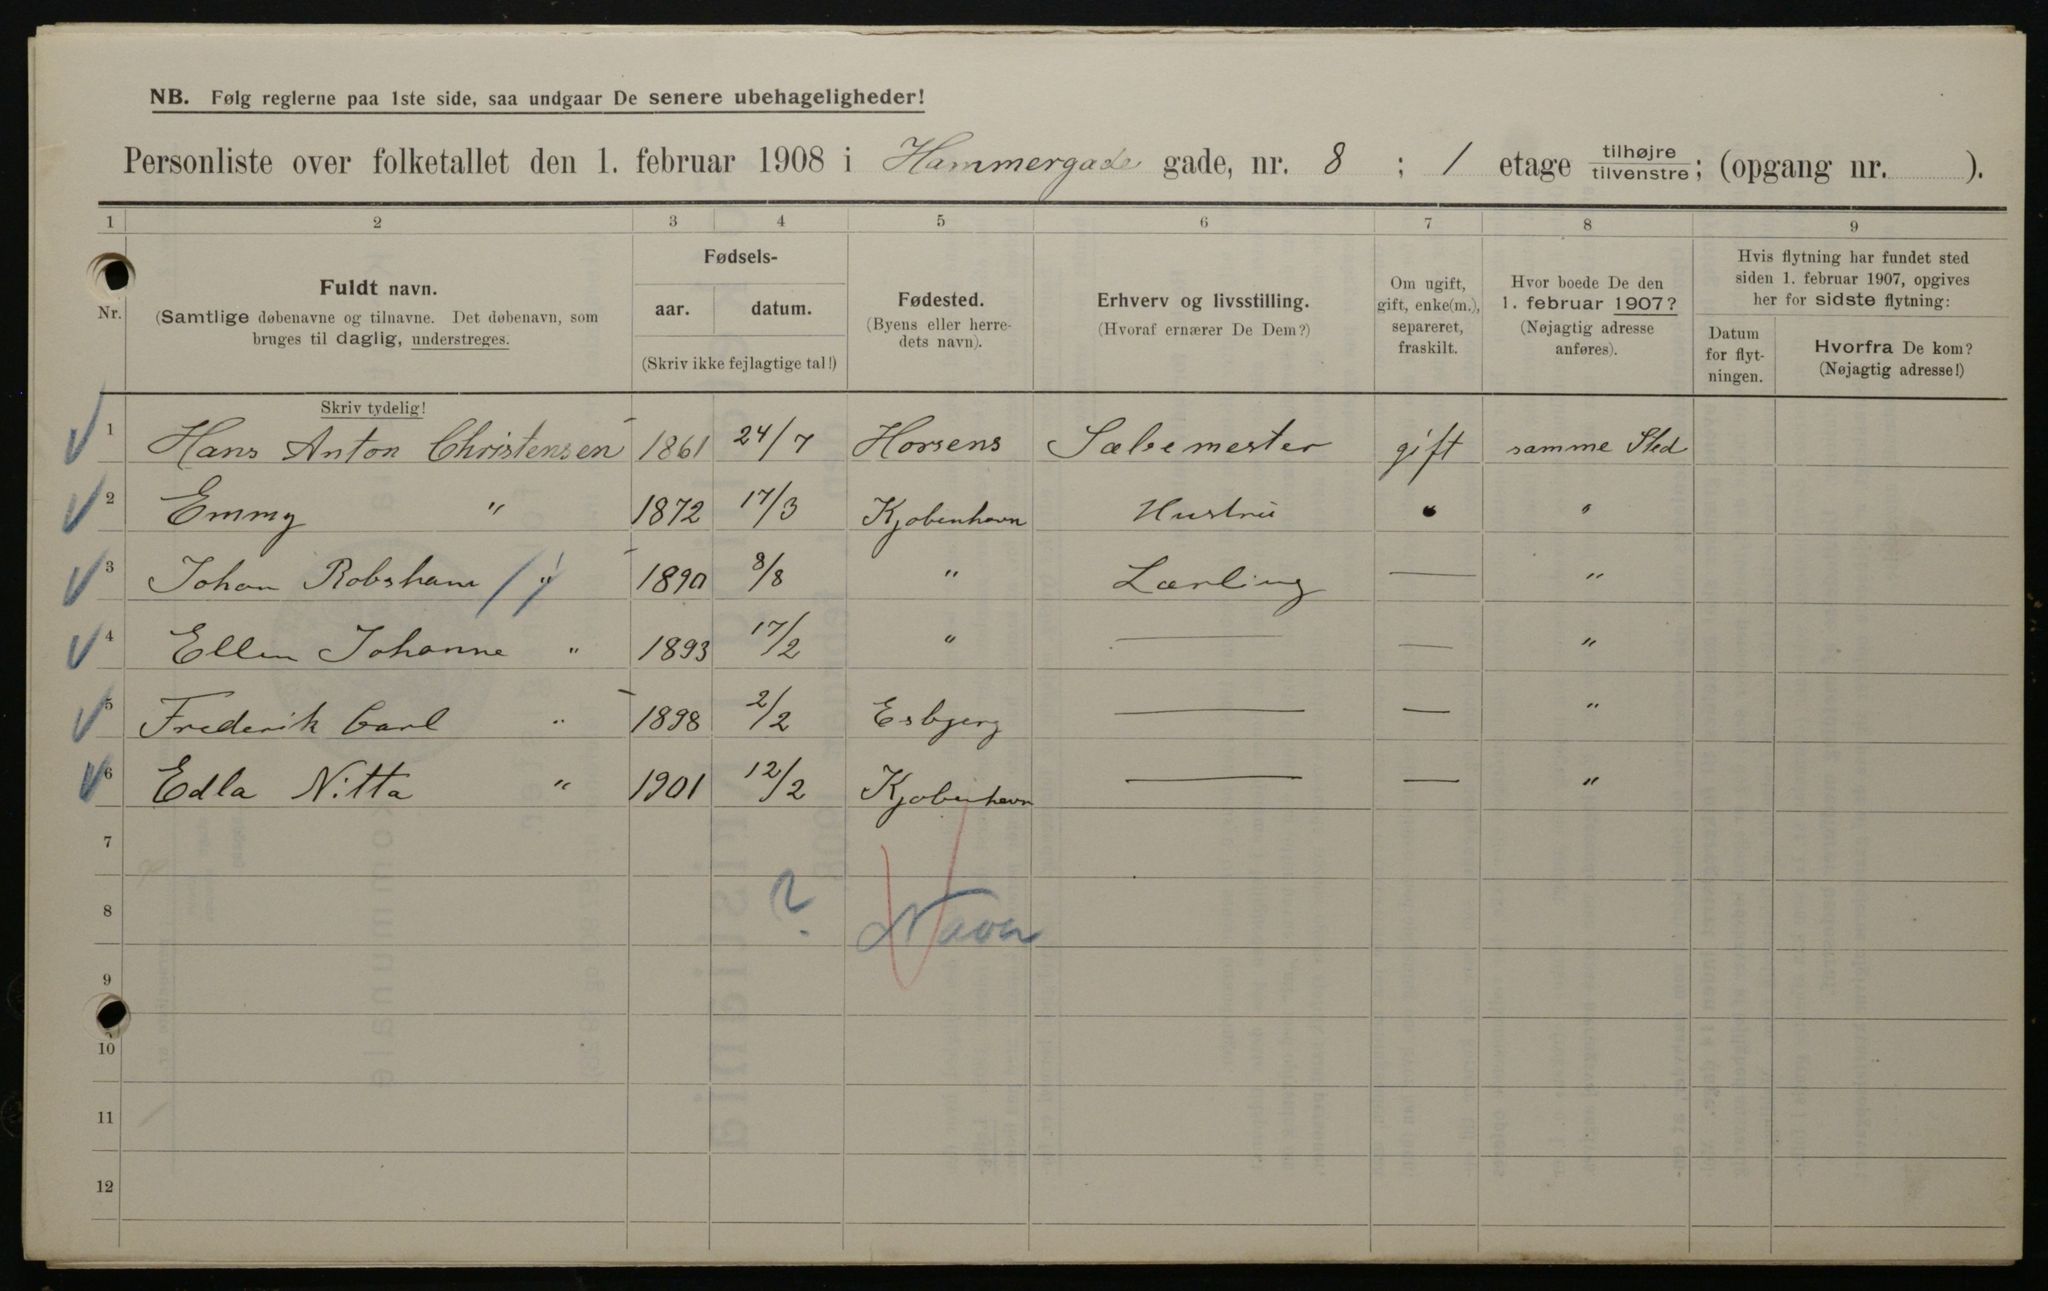 NB. Følg reglerne paa 1ste side, saa undgaar De senere ubehageligheder!
Personliste over folketallet den 1. februar 1908 i Hammergade gade, nr. 8 ; 1 etage tilhøjre/tilvenstre; (opgang nr. ).
1 2 3 4 5 6 7 8 9
Nr.
Fuldt navn.
(Samtlige døbenavne og tilnavne. Det døbenavn, som
bruges til daglig, understreges.
Skriv tydelig!
Fødsels-
aar. datum.
(Skriv ikke fejlagtige tal!)
Fødested.
(Byens eller herre-
dets navn).
Erhverv og livsstilling.
(Hvoraf ernærer De Dem?)
Om ugift,
gift, enke(m.),
separeret,
fraskilt.
Hvor boede De den
1. februar 1907?
(Nøjagtig adresse
anføres).
Hvis flytning har fundet sted
siden 1. februar 1907, opgives
her for sidste flytning:
Datum
for flyt-
ningen.
Hvorfra De kom?
(Nøjagtig adresse!)
1 Hans Anton Christensen 1861 24/7 Horsens Sæbemester gift samme Sted
2 Emmy " 1872 17/3 Kjøbenhavn Hustru " "
3 Johan Robsham " 1890 8/8 " Lærling — "
4 Ellen Johanne " 1893 17/2 " — — "
5 Frederik Carl " 1898 2/2 Esbjerg — — "
6 Edla Nitta " 1901 12/2 Kjøbenhavn — — "
7
8 ? Navn
9
10
11
12